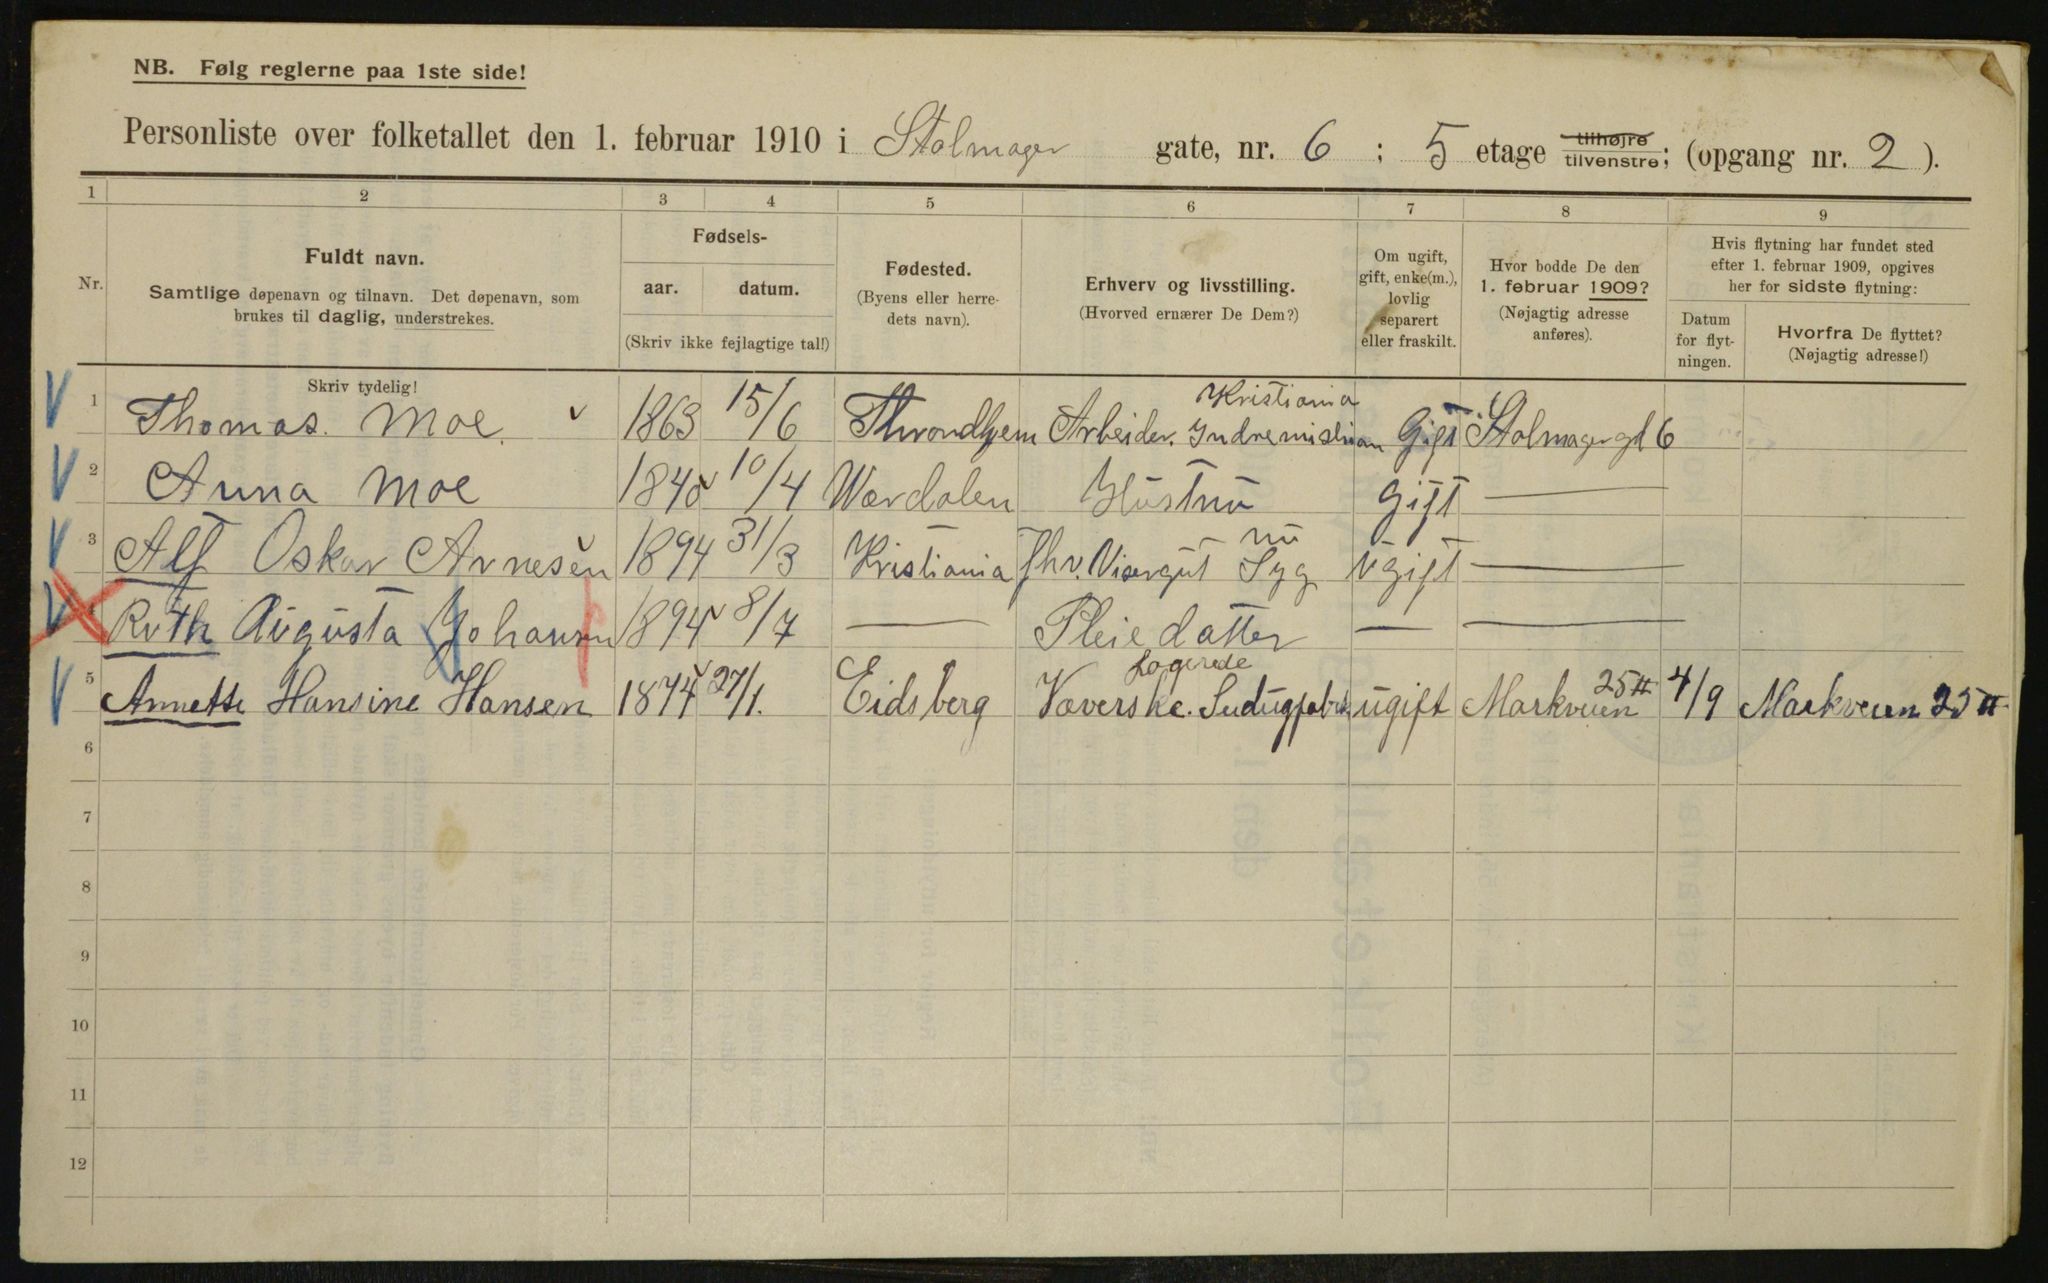 NB. Følg reglerne paa 1ste side!
Personliste over folketallet den 1. februar 1910 i Stolmager gate, nr. 6 ; 5 etage tilhøjre tilvenstre; (opgang nr. 2 ).
1 2 3 4 5 6 7 8 9
Nr.
Fuldt navn.
Samtlige døpenavn og tilnavn. Det døpenavn, som
brukes til daglig, understrekes.
Skriv tydelig!
Fødsels-
aar. datum.
(Skriv ikke fejlagtige tal!)
Fødested.
(Byens eller herre-
dets navn).
Erhverv og livsstilling.
(Hvorved ernærer De Dem?)
Om ugift,
gift, enke(m.),
lovlig
separert
eller fraskilt.
Hvor bodde De den
1. februar 1909?
(Nøjagtig adresse
anføres).
Hvis flytning har fundet sted
efter 1. februar 1909, opgives
her for sidste flytning:
Datum
for flyt-
ningen.
Hvorfra De flyttet?
(Nøjagtig adresse!)
1 Thomas. Moe. 1863 15/6 Throndhjem Arbeider. Kristiania Indremission Gift Stolmagergd 6
2 Anna Moe 1840 10/4 Værdalen Hustru Gift —
3 Alf Oskar Arnesen 1894 31/3 Kristiania fhv. Visergut nu Syg Ugift —
4 Ruth Augusta Johansen 1894 8/7 — Pleiedatter — —
5 Annette Hansine Hansen 1874 27/1. Eidsberg Væverske. Logerede ugift Markveien 25 II 4/9 Markveien 25 II
6
7
8
9
10
11
12